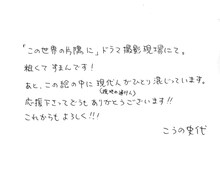 「この世界の片隅に」ドラマ撮影現場にて。
粗くてすまんです!
あと、この絵の中に現代人がひとり混じっています。
(現地の通行人)
応援下さってどうもありがとうございます!!
これからもよろしく!!
こうの史代